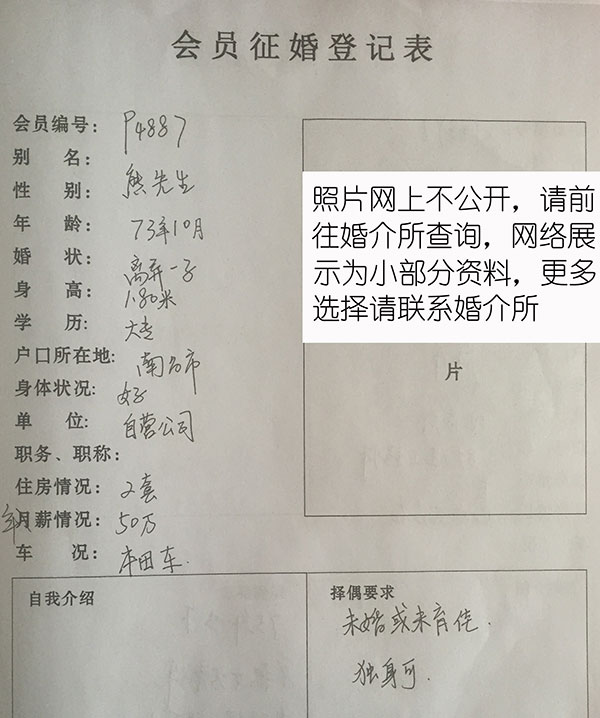 会员征婚登记表
会员编号: P4887
别 名:
性 别: 熊先生
年 龄: 73年10月
婚 状: 离异一子
身 高: 1.80米
学 历: 大专
户口所在地: 南昌市
身体状况: 好
单 位: 自营公司
职务、职称:
住房情况: 2套
年 月薪情况: 50万
车 况: 本田车.
照片网上不公开，请前
往婚介所查询，网络展
示为小部分资料，更多
选择请联系婚介所
片
自我介绍
择偶要求
未婚或未育佳.
独身可.